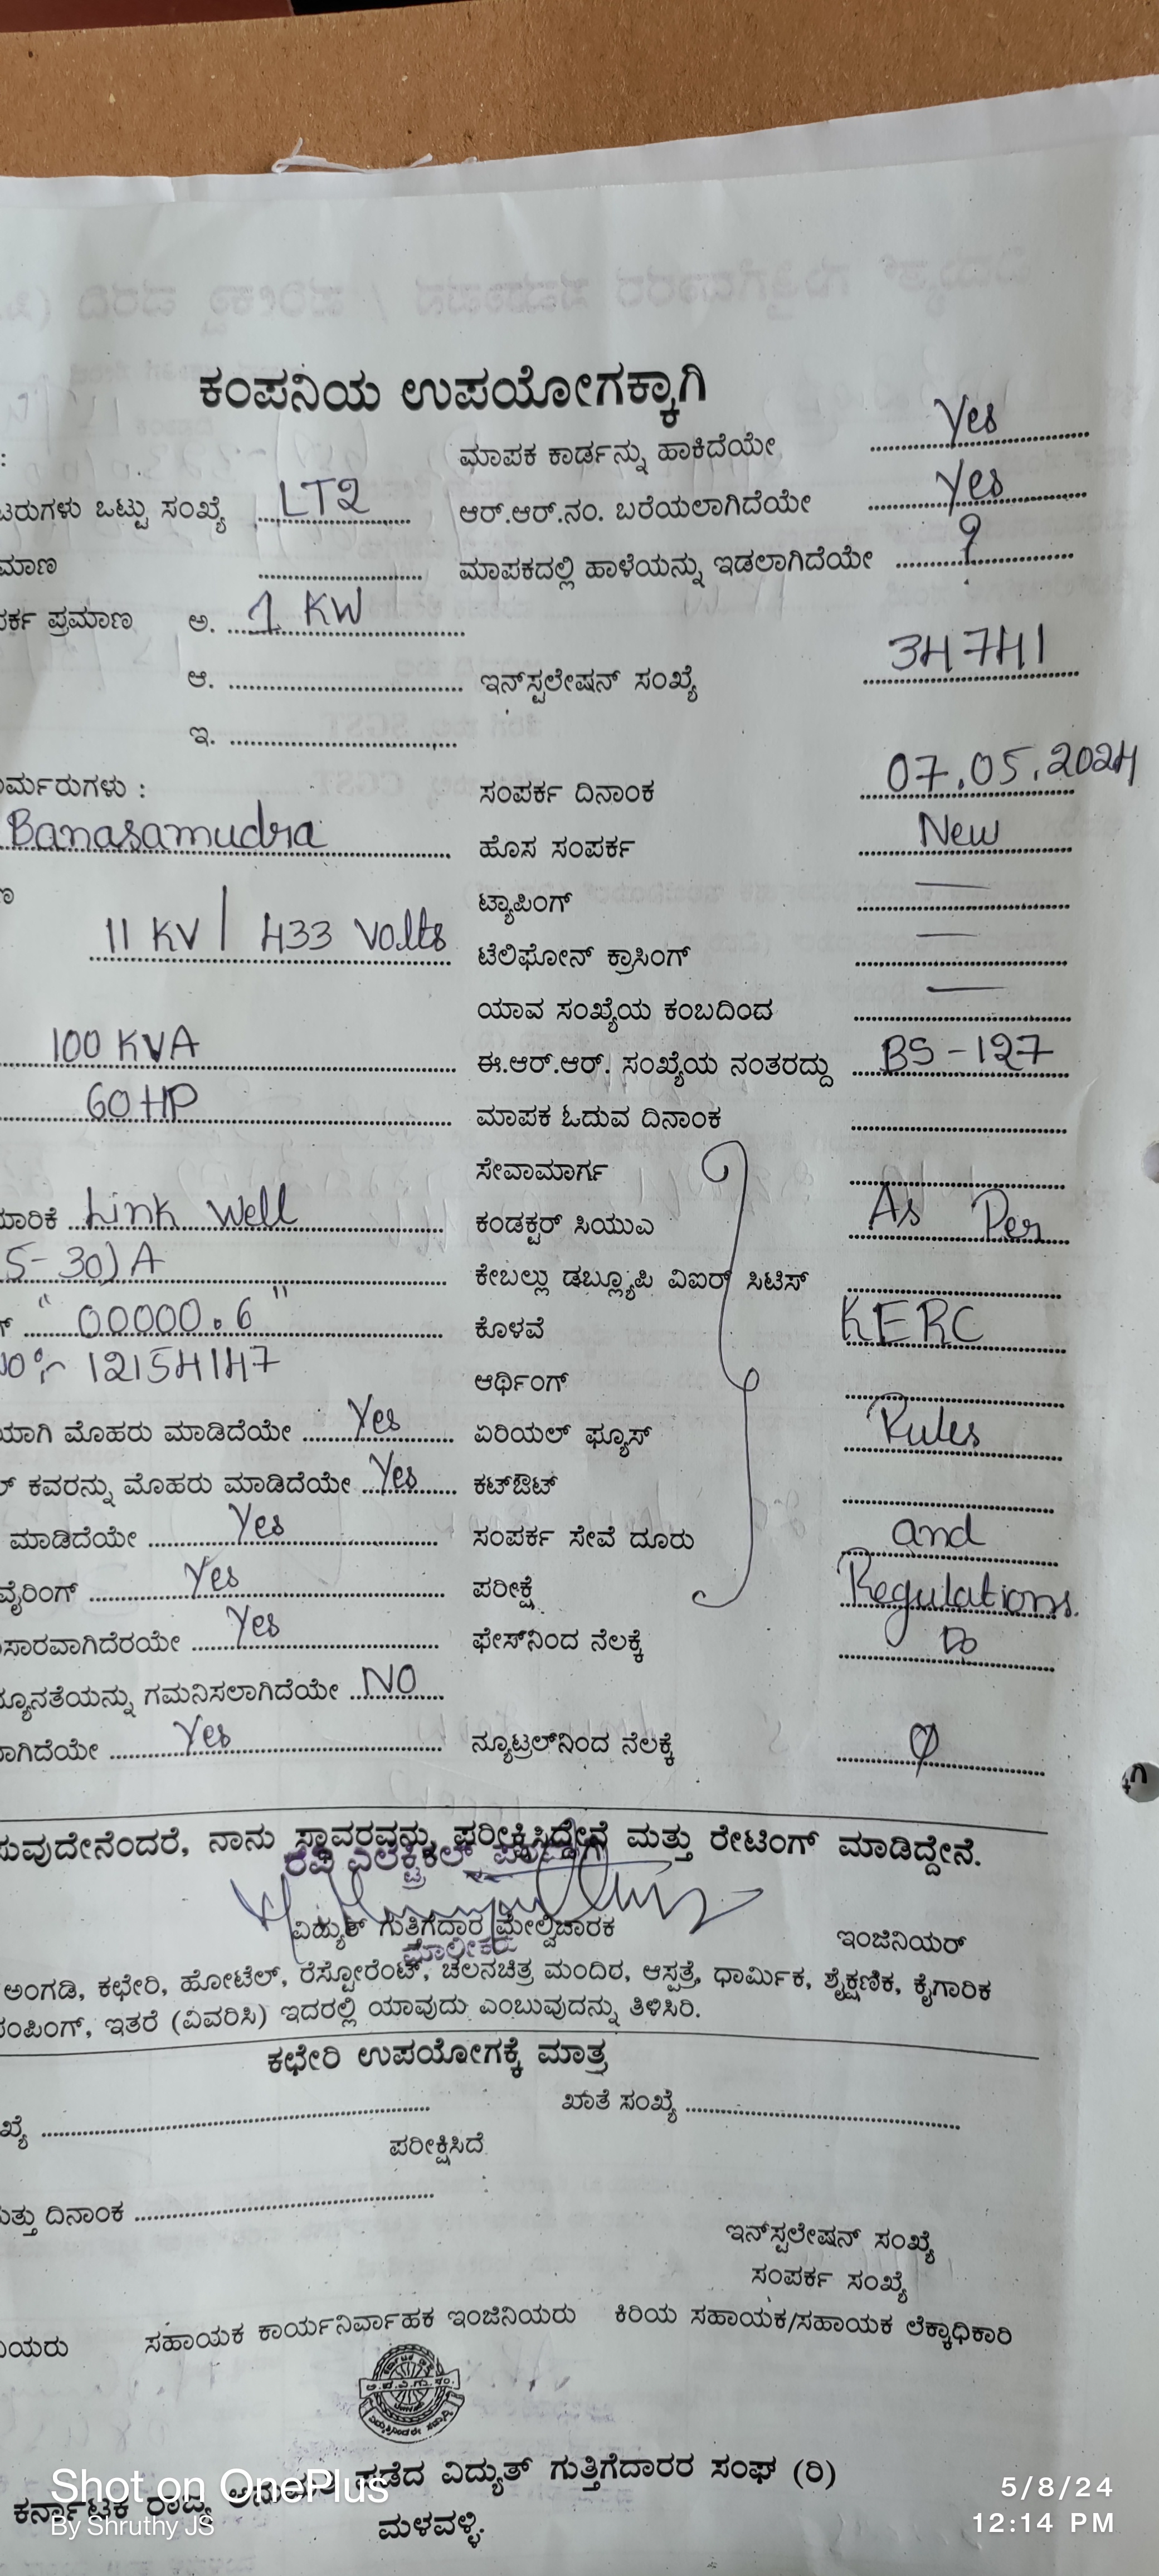 ಕಂಪನಿಯ ಉಪಯೋಗಕ್ಕಾಗಿ
: ಮಾಪಕ ಕಾರ್ಡನ್ನು ಹಾಕಿದೆಯೇ Yes
ಟರುಗಳು ಒಟ್ಟು ಸಂಖ್ಯೆ LT2 ಆರ್.ಆರ್.ನಂ. ಬರೆಯಲಾಗಿದೆಯೇ Yes
ಮಾಣ ಮಾಪಕದಲ್ಲಿ ಹಾಳೆಯನ್ನು ಇಡಲಾಗಿದೆಯೇ
ರ್ಕ ಪ್ರಮಾಣ ಅ. 1 KW
ಆ. ಇನ್‌ಸ್ಟಲೇಷನ್ ಸಂಖ್ಯೆ 34741
ಇ.
ರ್ಮರುಗಳು : ಸಂಪರ್ಕ ದಿನಾಂಕ 07.05.2024
Banasamudra ಹೊಸ ಸಂಪರ್ಕ New
ಟ್ಯಾಪಿಂಗ್ —
11 KV / 433 Volts ಟೆಲಿಫೋನ್ ಕ್ರಾಸಿಂಗ್ —
ಯಾವ ಸಂಖ್ಯೆಯ ಕಂಬದಿಂದ —
100 KVA ಈ.ಆರ್.ಆರ್. ಸಂಖ್ಯೆಯ ನಂತರದ್ದು BS-127
60 HP ಮಾಪಕ ಓದುವ ದಿನಾಂಕ
ಸೇವಾಮಾರ್ಗ
ಮಾರಿಕೆ Link Well ಕಂಡಕ್ಟರ್ ಸಿಯುಎ As Per
5-30)A ಕೇಬಲ್ಲು ಡಬ್ಲ್ಯೂಪಿ ವಿಐಆರ್ ಸಿಟಿಸ್
"00000.6" ಕೊಳವೆ KERC
12154147 ಆರ್ಥಿಂಗ್
ಯಾಗಿ ಮೊಹರು ಮಾಡಿದೆಯೇ Yes ಏರಿಯಲ್ ಫ್ಯೂಸ್ Rules
ಕವರನ್ನು ಮೊಹರು ಮಾಡಿದೆಯೇ Yes ಕಟ್‌ಔಟ್
ಮಾಡಿದೆಯೇ Yes ಸಂಪರ್ಕ ಸೇವೆ ದೂರು and
ವೈರಿಂಗ್ Yes ಪರೀಕ್ಷೆ Regulations.
ಸಾರವಾಗಿದೆರಯೇ Yes ಫೇಸ್‌ನಿಂದ ನೆಲಕ್ಕೆ
ನ್ಯೂನತೆಯನ್ನು ಗಮನಿಸಲಾಗಿದೆಯೇ NO
ಾಗಿದೆಯೇ Yes ನ್ಯೂಟ್ರಲ್‌ನಿಂದ ನೆಲಕ್ಕೆ
ಸುವುದೇನೆಂದರೆ, ನಾನು ಸ್ಥಾವರವನ್ನು ಪರೀಕ್ಷಿಸಿದ್ದೇನೆ ಮತ್ತು ರೇಟಿಂಗ್ ಮಾಡಿದ್ದೇನೆ.
ರವಿ ಎಲೆಕ್ಟ್ರಿಕಲ್
ವಿದ್ಯುತ್ ಗುತ್ತಿಗೆದಾರ ಮೇಲ್ವಿಚಾರಕ ಇಂಜಿನಿಯರ್
ಮಾಲೀಕರು
ಅಂಗಡಿ, ಕಛೇರಿ, ಹೋಟೆಲ್, ರೆಸ್ಟೋರೆಂಟ್, ಚಲನಚಿತ್ರ ಮಂದಿರ, ಆಸ್ಪತ್ರೆ, ಧಾರ್ಮಿಕ, ಶೈಕ್ಷಣಿಕ, ಕೈಗಾರಿಕ
ಪಂಪಿಂಗ್, ಇತರೆ (ವಿವರಿಸಿ) ಇದರಲ್ಲಿ ಯಾವುದು ಎಂಬುವುದನ್ನು ತಿಳಿಸಿರಿ.
ಕಛೇರಿ ಉಪಯೋಗಕ್ಕೆ ಮಾತ್ರ
ಖ್ಯೆ ಖಾತೆ ಸಂಖ್ಯೆ
ಪರೀಕ್ಷಿಸಿದೆ
ಮತ್ತು ದಿನಾಂಕ
ಇನ್‌ಸ್ಟಲೇಷನ್ ಸಂಖ್ಯೆ
ಸಂಪರ್ಕ ಸಂಖ್ಯೆ
ಿಯರು ಸಹಾಯಕ ಕಾರ್ಯನಿರ್ವಾಹಕ ಇಂಜಿನಿಯರು ಕಿರಿಯ ಸಹಾಯಕ/ಸಹಾಯಕ ಲೆಕ್ಕಾಧಿಕಾರಿ
ಕರ್ನಾಟಕ ರಾಜ್ಯ ಅನುಮತಿ ಪಡೆದ ವಿದ್ಯುತ್ ಗುತ್ತಿಗೆದಾರರ ಸಂಘ (ರಿ)
ಮಳವಳ್ಳಿ.
Shot on OnePlus
By Shruthy JS
5/8/24
12:14 PM